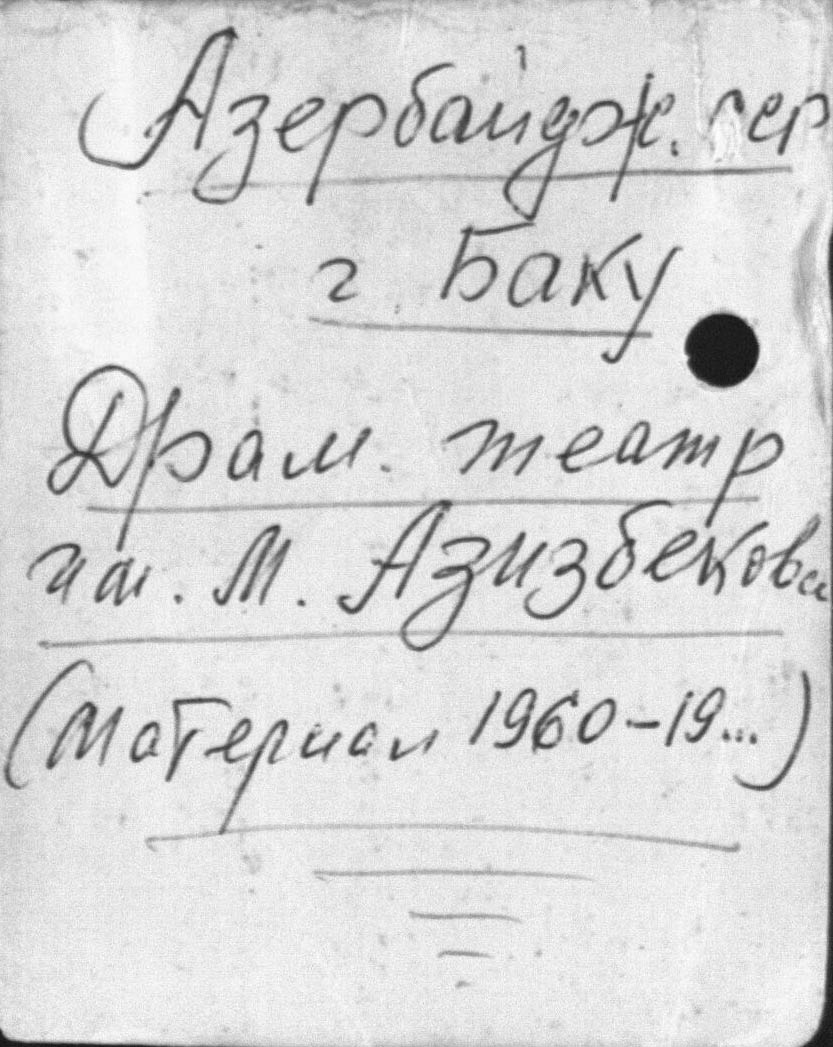 Азербайдж. сср
г. Баку
Драм. театр
им. М. Азизбекова
(Материал 1960-19...)